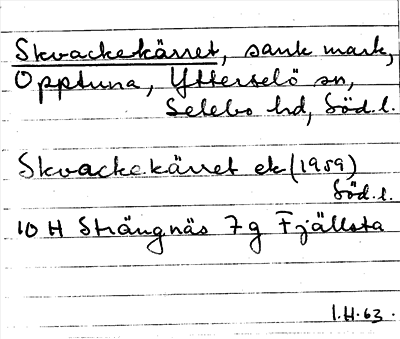 Skvackekärret, sank mark,
Opptuna, Ytterselö sn,
Selebo hd, Söd.l.
Skvackekärret ek (1959)
Söd.l.
10 H Strängnäs 7 g Fjällsta
I.H.63.